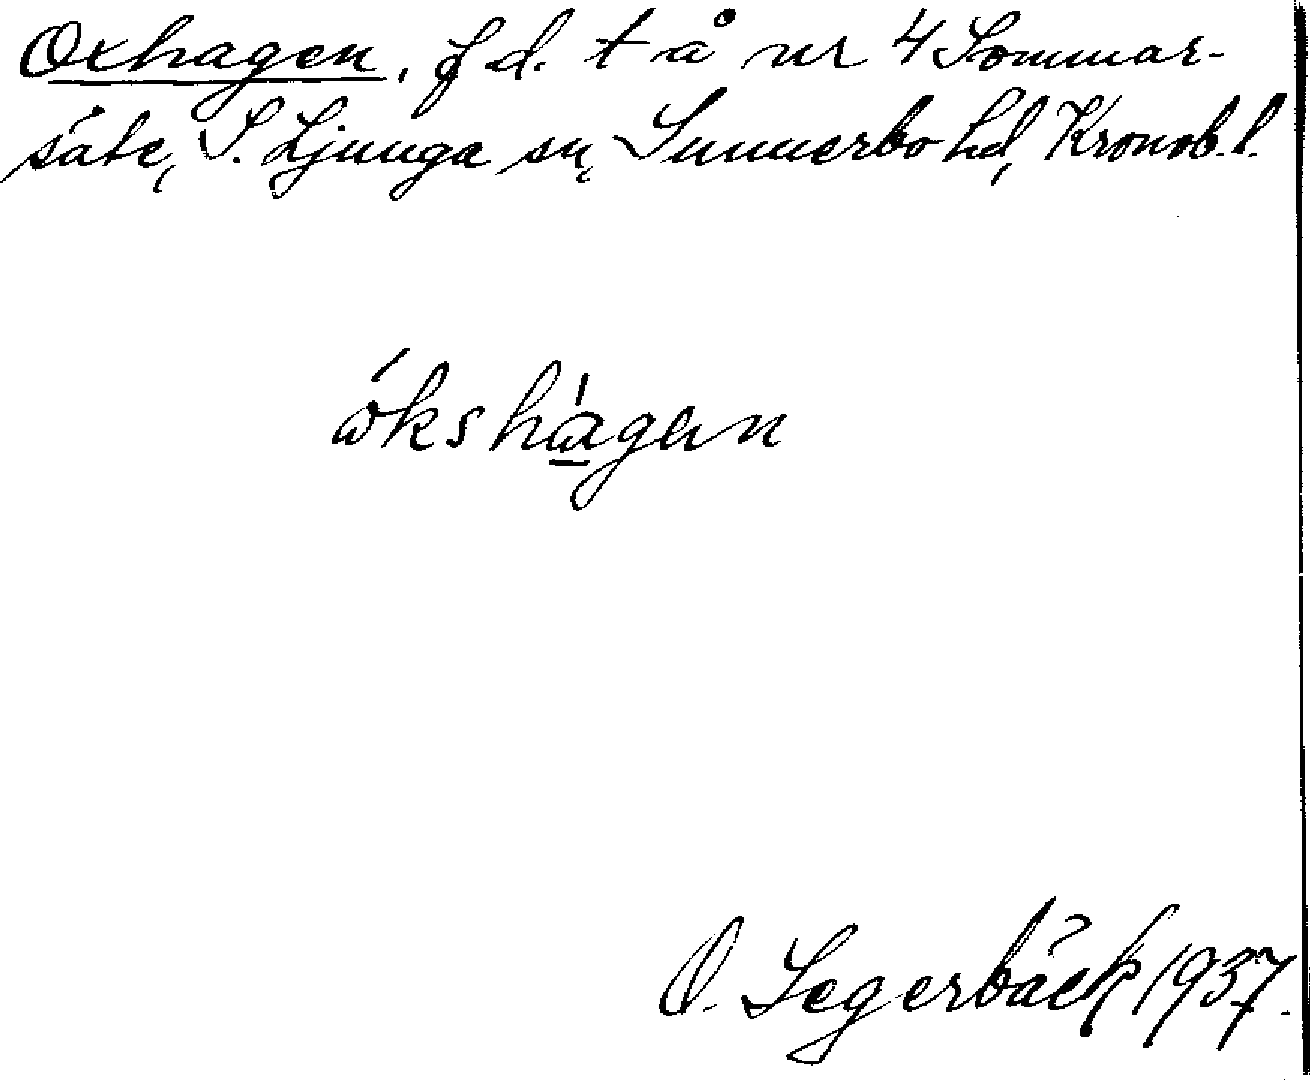 Oxhagen, f d. t å nr 4 Sommar-
säte, S. Ljunga sn, Sunnerbo hd, Kronob. l.
ókshágan
O. Segerbäck 1937.